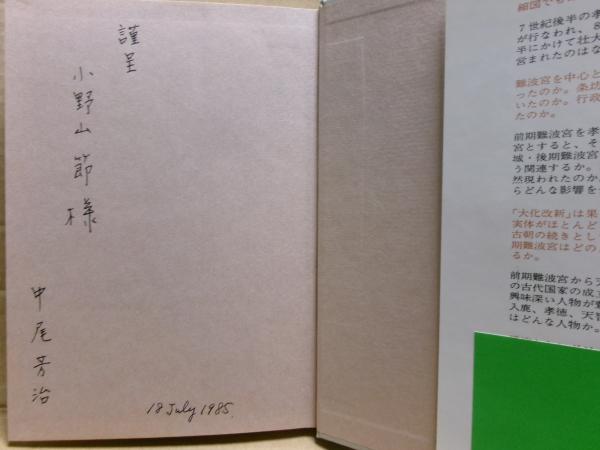 謹呈
小野山節様
中尾芳治
18 July 1985.
縮図でも
7世紀後半の孝
が行なわれ、8
半にかけて壮大
営まれたのはな
難波宮を中心と
ったのか。条坊
いたのか。行政
たのか。
前期難波宮を孝
宮とすると、そ
城・後期難波宮
う関連するか。
然現われたのか
らどんな影響を
「大化改新」は果
実体がほとんど
古朝の続きとし
期難波宮はどの
るか。
前期難波宮から天
の古代国家の成立
興味深い人物が登
入鹿、孝徳、天智
はどんな人物か。